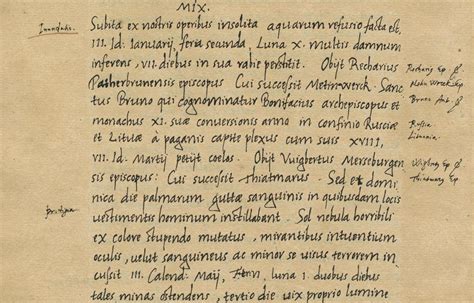 MIX.
Inundatio.
Subita ex nostris operibus insolita aquarum refusio facta est
III. Id: Ianuarij, feria secunda, Luna X. multis damnum
inferens, VII. diebus in sua rabie perstitit. Obijt Recharius
Patherbrunensis episcopus Cui successit Metinwerck. Sanc
tus Bruno qui cognominatur Bonifacius archepiscopus et
monachus XI. suae conversionis anno in confinio Rusciae
et Lituae à paganis capite plexus cum suis XVIII,
VII. Id: Martij petijt coelos. Obijt Vuigbertus Merseburgen
sis episcopus: Cui successit Thiatmarus. Sed et domi
nica die palmarum guttae sanguinis in quibusdam locis
vestimentis hominum instillabant. Sol nebula horribili
ex colore stupendo mutatus, mirantibus intuentium
oculis, velut sanguineus ac minor se visus terrorem in
cussit III. Calend: Maij, luna I. duobus diebus
tales minas ostendens, tertio die vix proprio lumine
Russia
Lituania